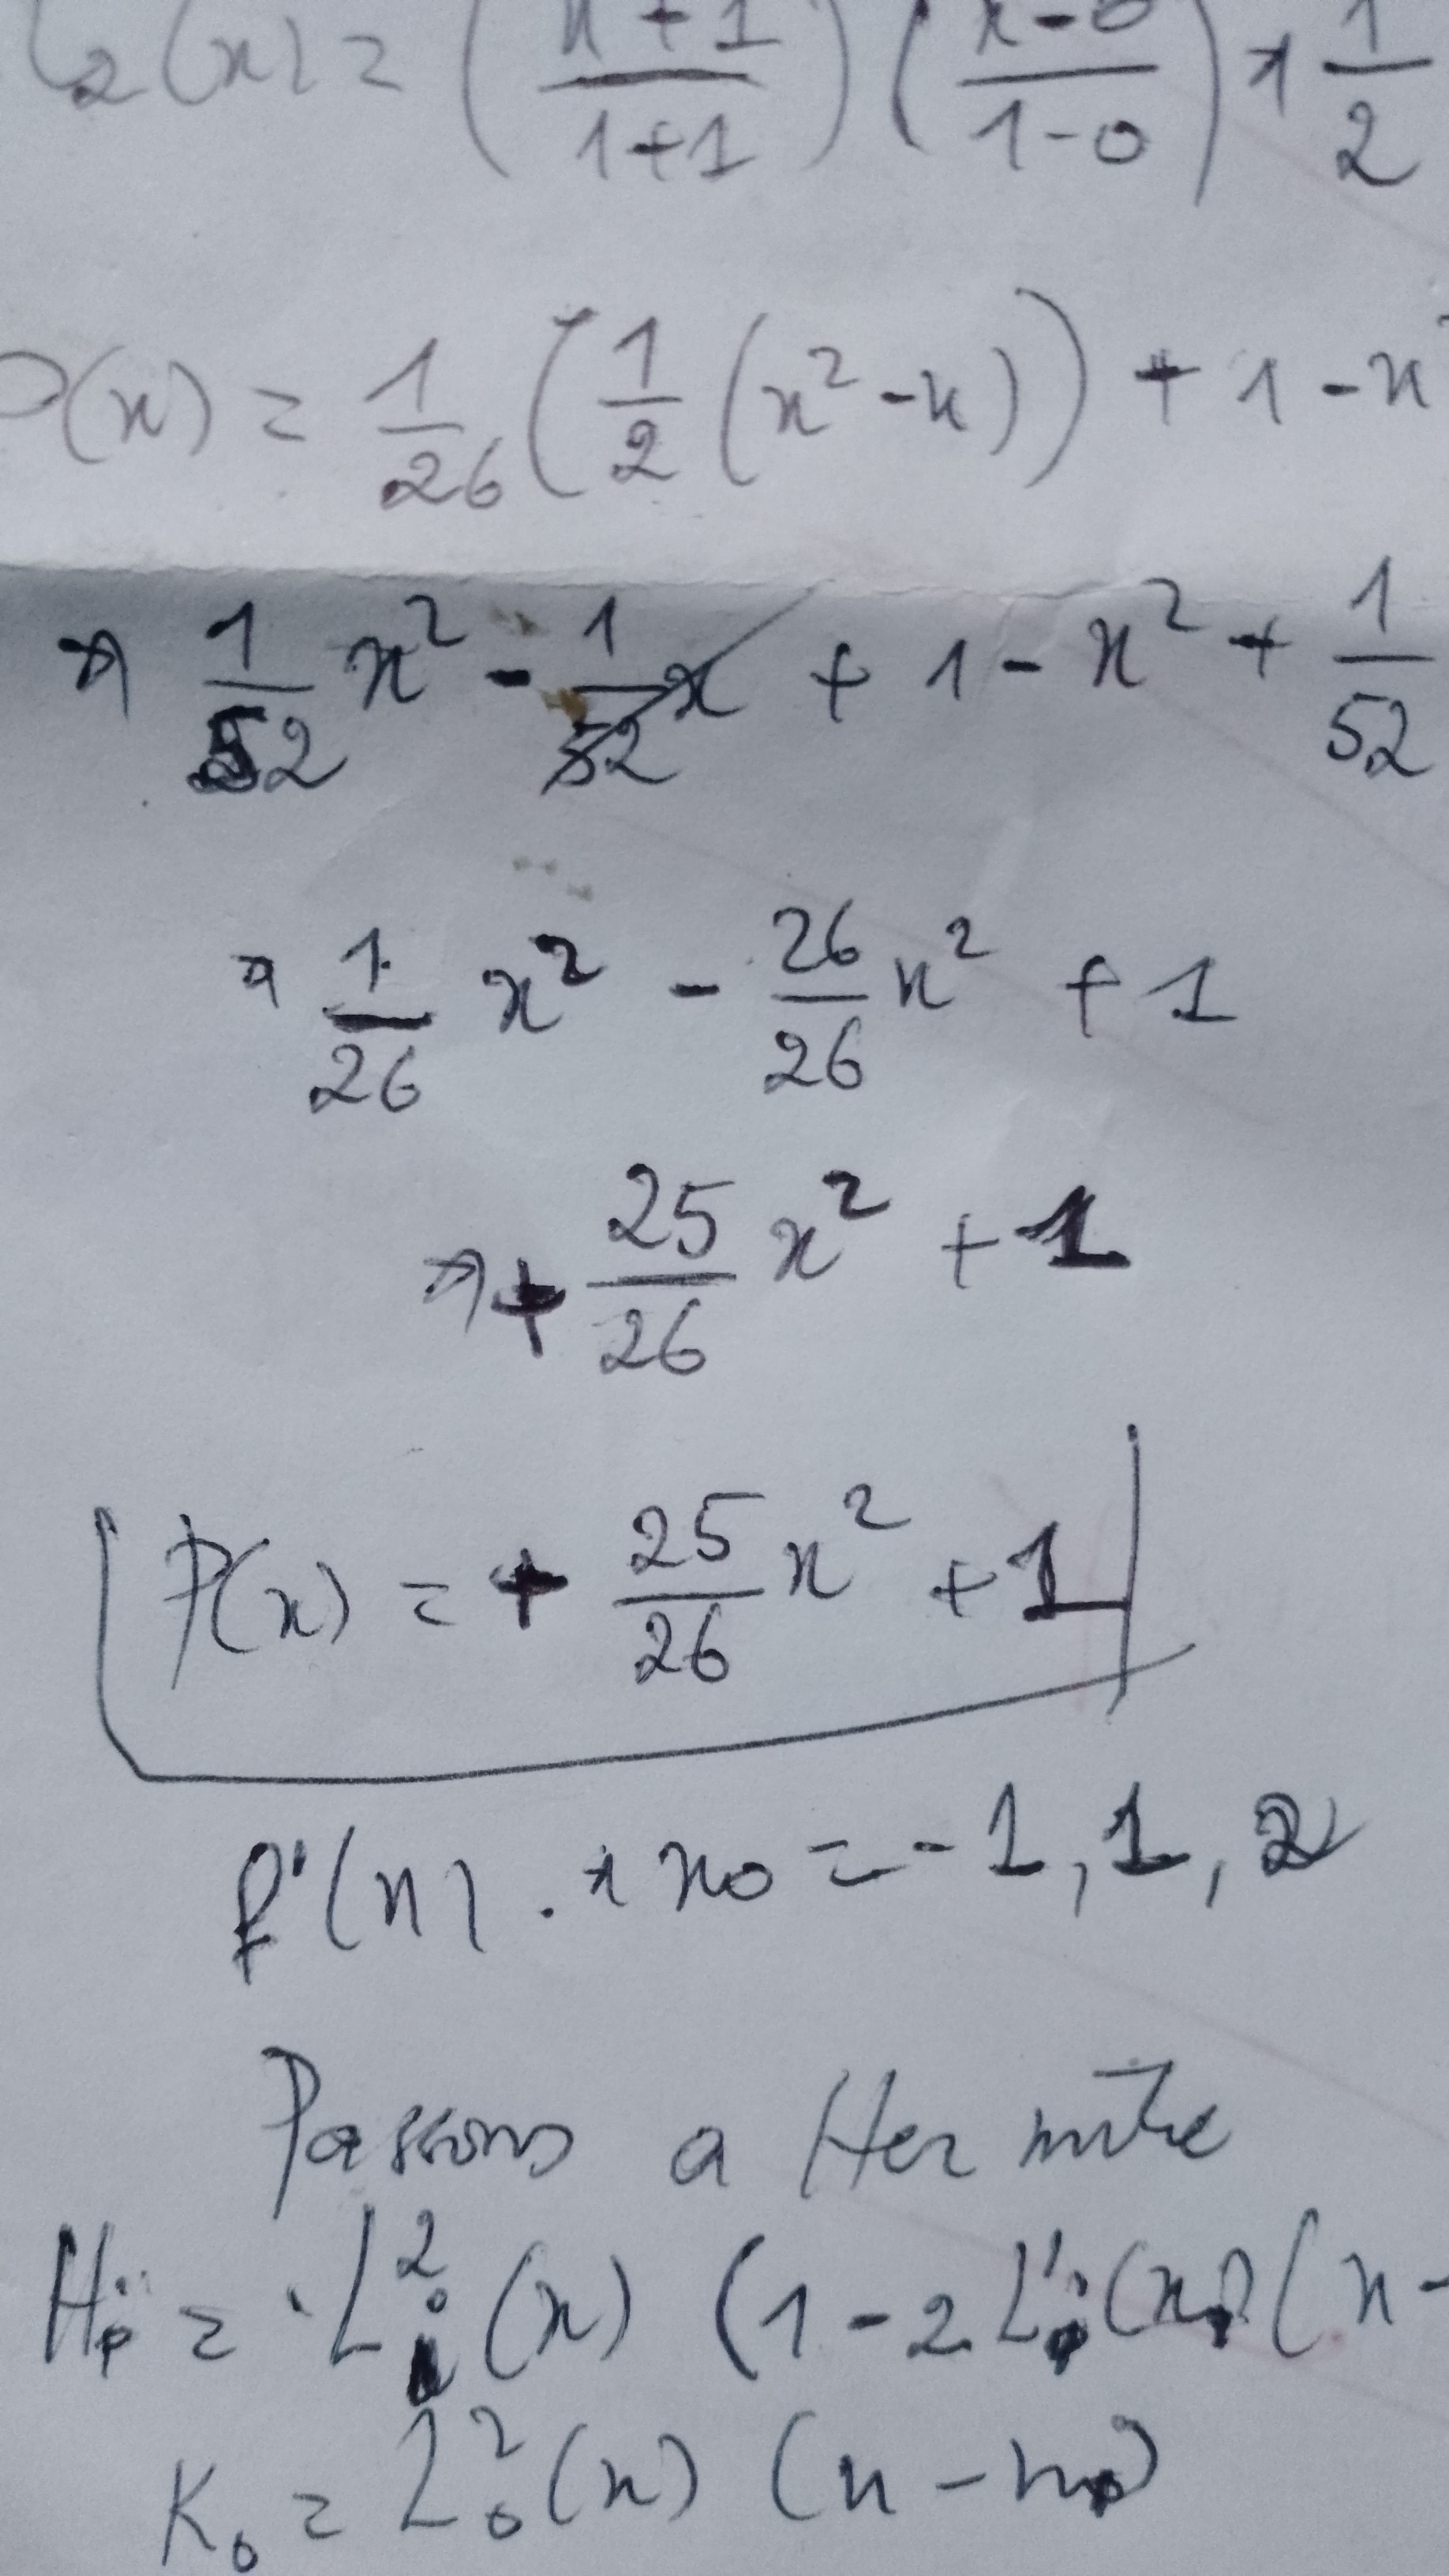 L₂(x) = (x+1 / 1+1) (x-0 / 1-0) ⇒ 1/2
P(x) = 1/26 (1/2 (x² - x)) + 1 - x²
⇒ 1/52 x² - 1/52 x + 1 - x² + 1/52
⇒ 1/26 x² - 26/26 x² + 1
⇒ + 25/26 x² + 1
P(x) = + 25/26 x² + 1
f'(x). x₀ = -1, 1, 2
Passons a Hermite
Hᵢ = Lᵢ²(x) (1 - 2 L'ᵢ(xᵢ) (x -
K₀ = L₀²(x) (x - x₀)